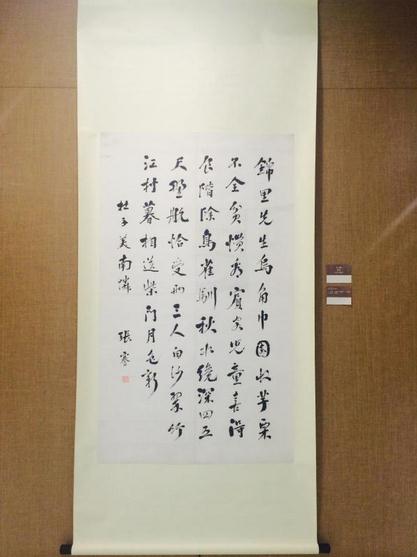 錦里先生烏角巾園收芋栗
不全貧慣看賓客兒童喜得
食階除鳥雀馴秋水纔深四五
尺野航恰受兩三人白沙翠竹
江村暮相送柴門月色新
杜子美南鄰 張謇